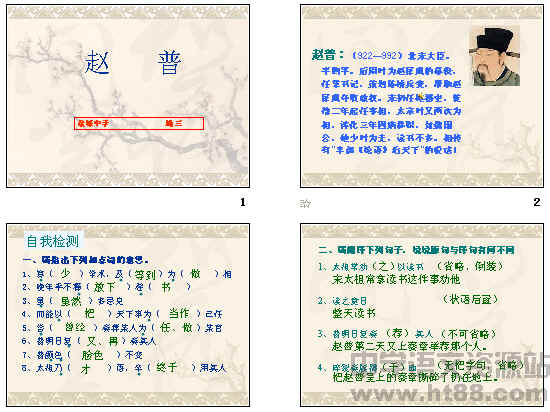 赵 普
1
赵普：（922—992）北宋大臣。
字则平。后周时为赵匡胤的幕僚，
任掌书记，策划陈桥兵变，帮助赵
匡胤夺取政权。宋初任枢密使，乾
德二年起任宰相，太宗时又两次为
相，淳化三年因病辞职，封魏国
公。他少时为吏，读书不多。相传
有"半部《论语》治天下"的说法！
2
自我检测
一、请指出下列加点词的意思。
1、寡（ 少 ）学术，及（等到）为（ 做 ）相
2、晚年手不释（ 放下 ）卷（ 书 ）
3、虽（ 虽然 ）多忌克
4、而能以（ 把 ）天下事为（ 当作 ）己任
5、尝（ 曾经 ）奏荐某人为（ 任、做 ）某官
6、普明日复（ 又、再 ）奏其人
7、普颜色（ 脸色 ）不变
8、太祖乃（ 才 ）悟，卒（ 终于 ）用其人
二、请翻译下列句子，说说原句与译句有何不同
1、太祖常劝（之）以读书 （省略、倒装）
宋太祖常拿读书这件事劝他
2、读之竟日 （状语后置）
整天读书
3、普明日复奏（荐）其人 （不可省略）
赵普第二天又上奏章举荐那个人。
4、碎裂奏牍掷（于）地 （无"把"字句，省略）
把赵普呈上的奏章撕碎了扔在地上。
中学语文资源站
www.ht88.com